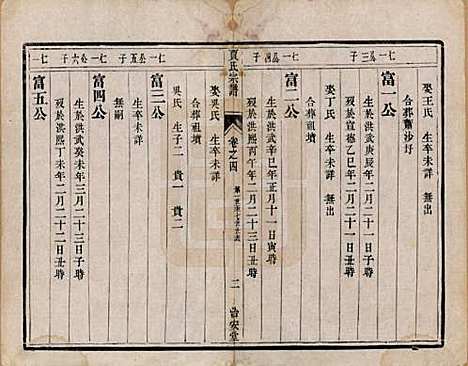 七一公三子
娶王氏 生卒未詳 無出
合葬蕭沙圩
富一公
生於洪武庚辰年二月二十一日子時
歿於宣德乙巳年二月二十一日丑時
娶丁氏 生卒未詳 無出
合葬祖墳
七一公四子
富二公
生於洪武辛巳年正月十一日寅時
歿於洪熙丙午年二月二十三日丑時
合葬祖墳
賈氏宗譜
卷之四
二
治安堂
七一公五子
娶吳氏 生卒未詳
合葬祖墳
富三公
生卒未詳
吳氏 生子二 貴一 貴二
七一公六子
無嗣
富四公
生於洪武癸亥年三月二十三日子時
歿於洪熙丁未年二月二十二日丑時
七一
富五公